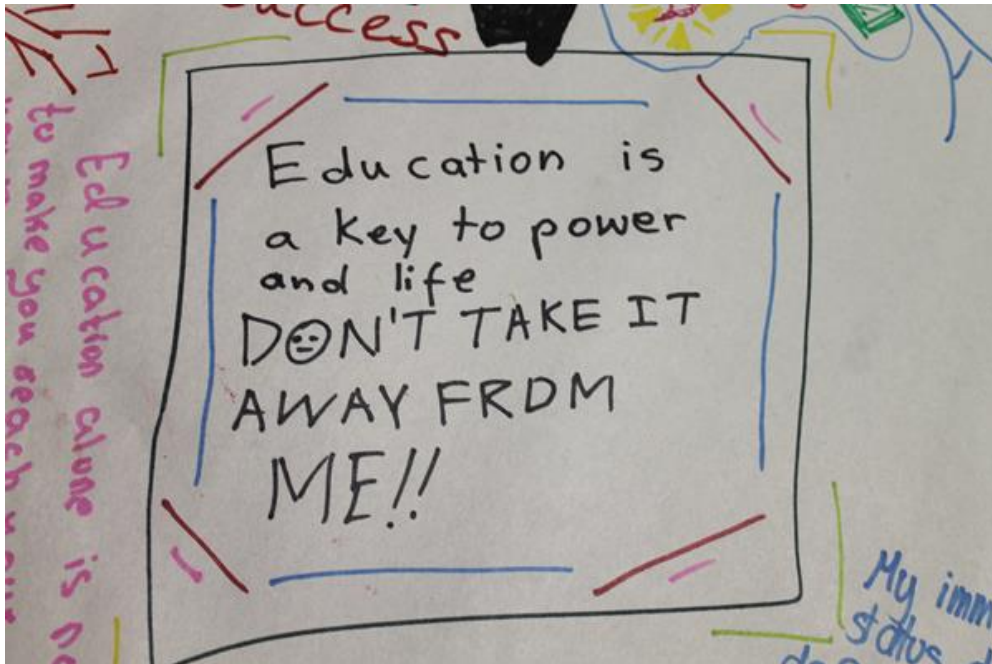 success
Education is
a key to power
and life
DON'T TAKE IT
AWAY FROM
ME!!
Education alone is
to make you reach your
My
status